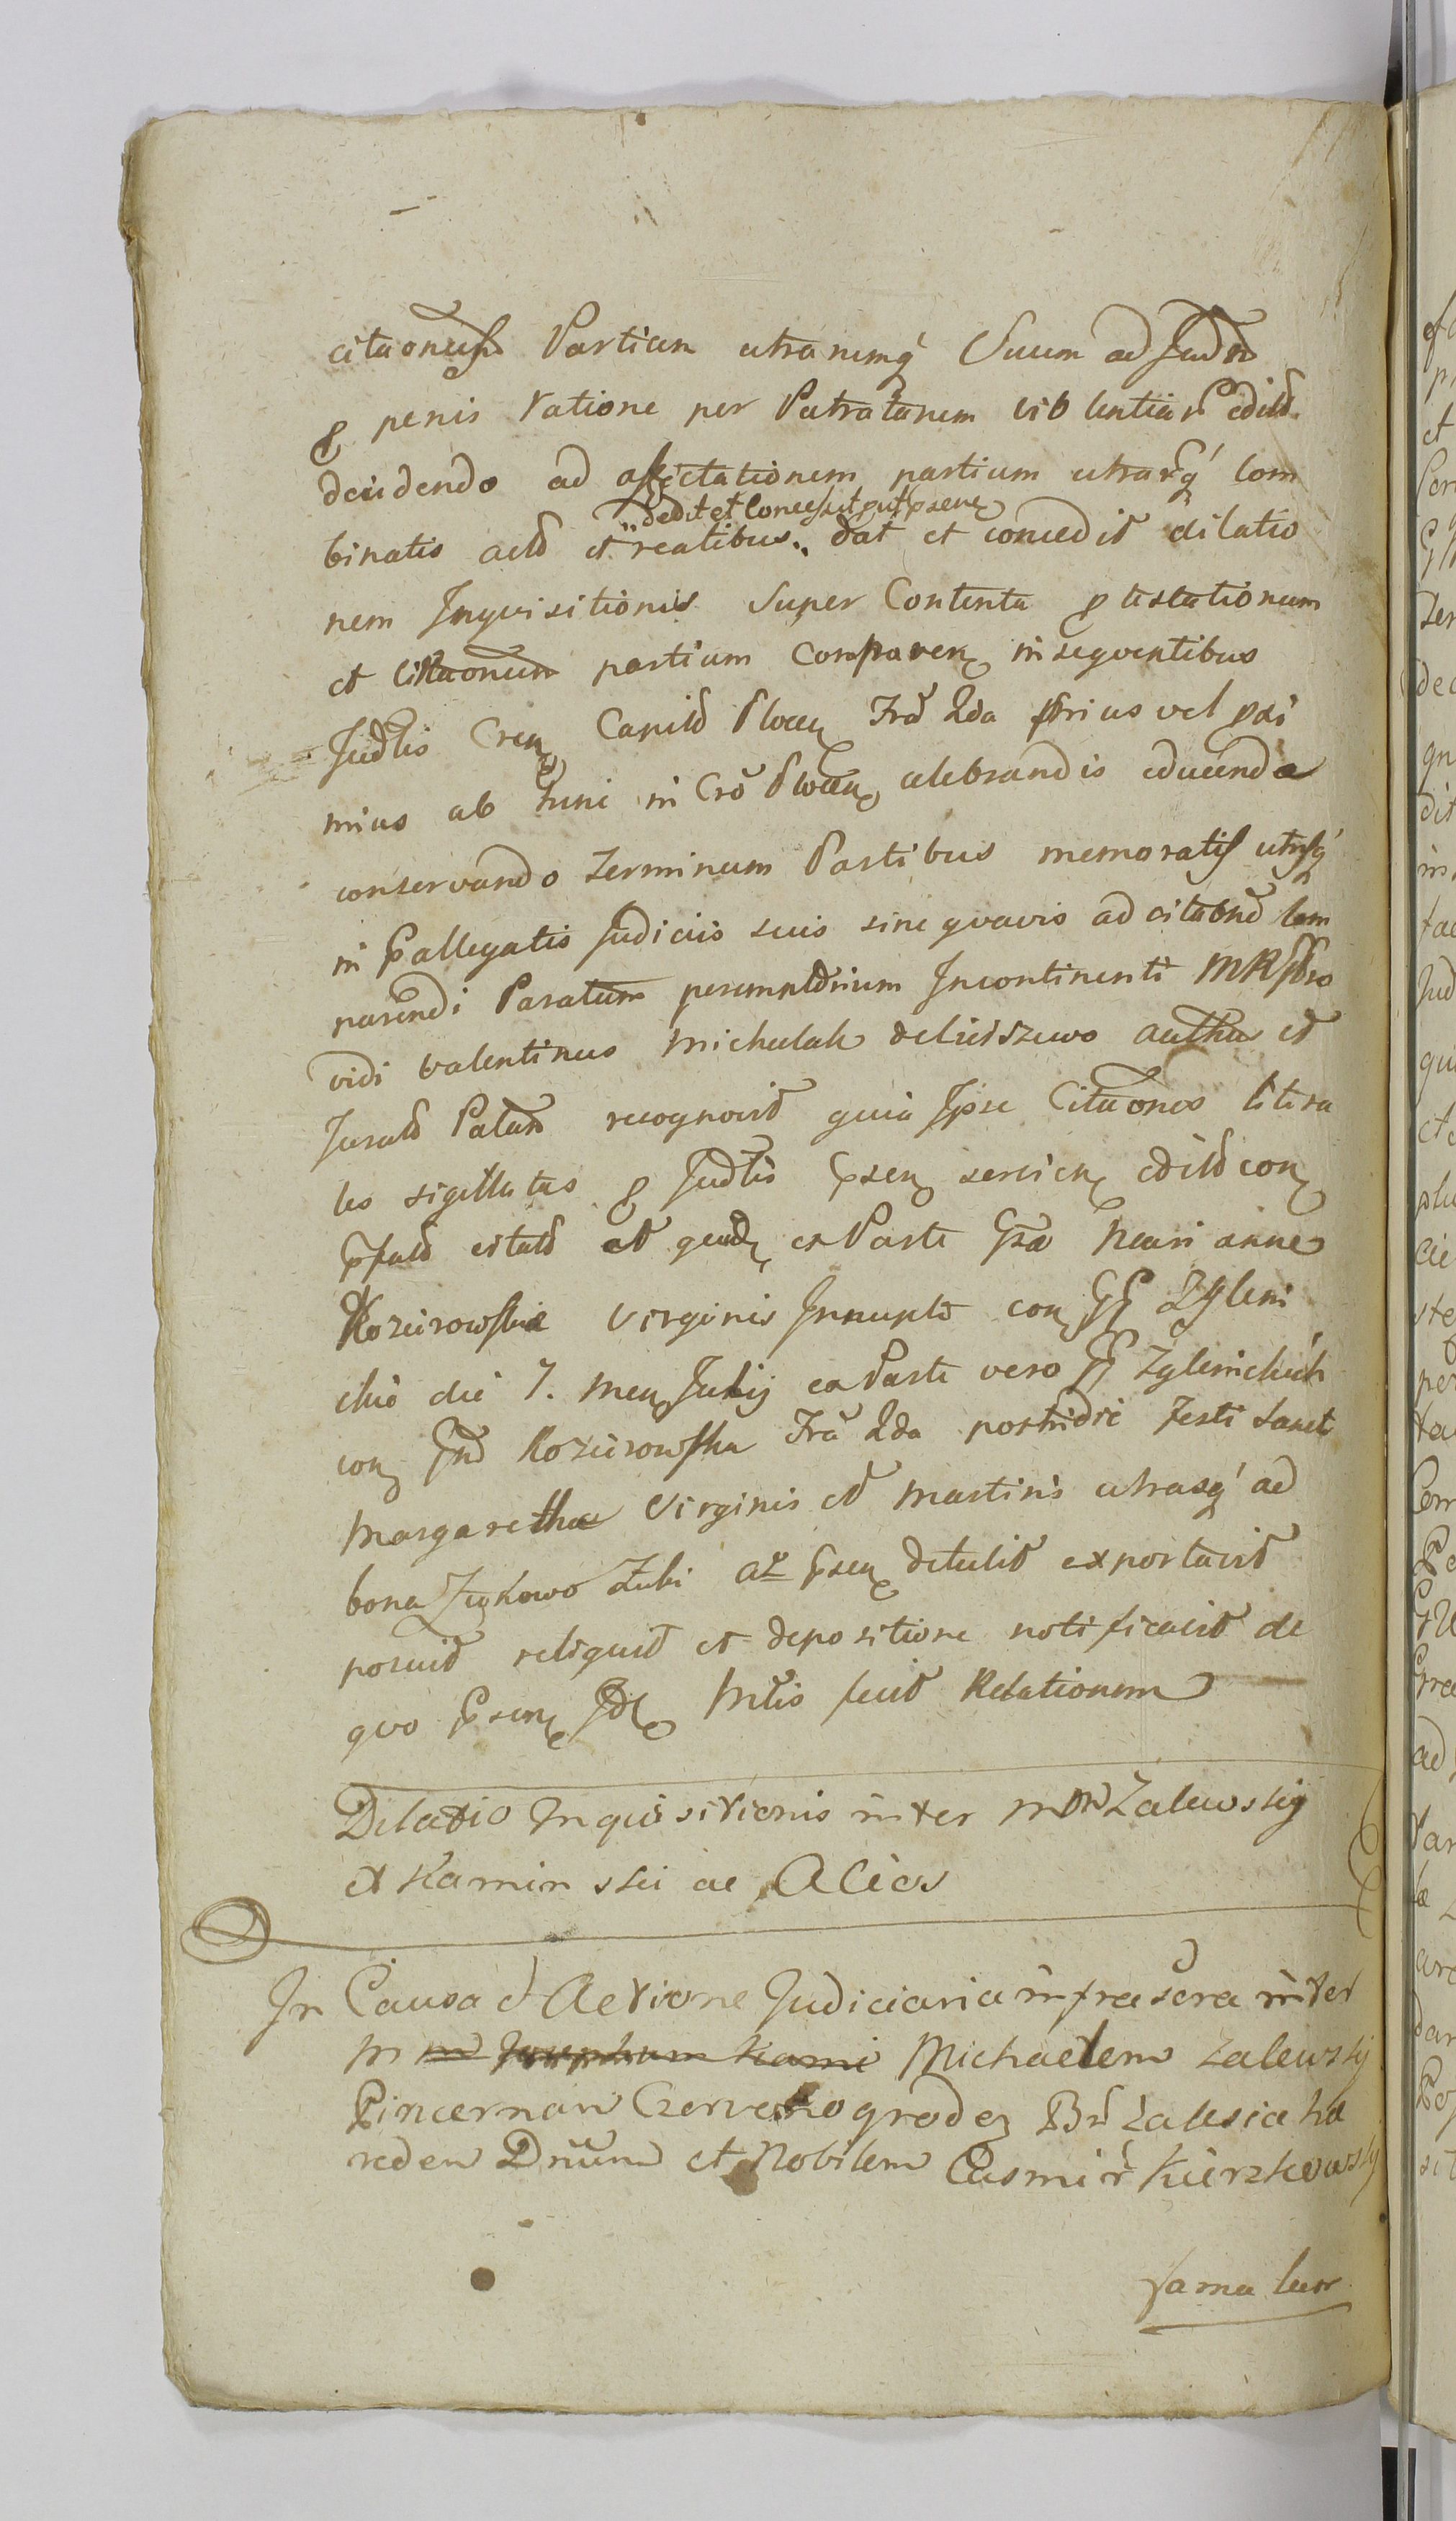 citaonum Partium utrarumq́ Suum ad Judm
p penis ratione per Patratarum violentiar edit
decidendo ad affectationem partium utrarq́ Com
dedit et Concessit put psen
binatis actis et reatibus dat et concedit dilatio
nem Inqvisitionis Super Contenta ptestationum
et Citaonum partium Comparen in seqventibus
Judtis Cren Capital Plocen Fra 2da prius vel proxi
mius ab hinc in Cro Plocen celebrandis educenda
conservando Terminum Partibus memoratis utrisq́
in pallegatis Judiciis suis sine qvavis ad citatne Com
parendi Paratum peremptorium Incontinenti MR
vidi Valentinus Michalak de autha et
Jurat Palam recognovit quia Ipse Citaones litera
les sigillatas p Judtis psen servien edit con
citat et quidem ex Parte Gsa Anne
Kozurowskie Virginis Innupte con GG Zgleni
ckie die 7. Men Julij ex Parte vero GG Zglenickich
con Gnd Kozurowska Fra 2da postridie Festi Sancte
Margarethae Virginis et Martiris utrasq́ ad
bona Zukowo Zuki at psen detulit exportavit
posuit reliquit et depositione notificavit de
quo psen Mtis fecit Relationem
Dilatio Inquisitionis inter MM Zalewskij
et Kaminski ac Alios
In Causa et Actione Judiciaria infrascra inter
M Josephum Kami Michaelem Zalewskij
Pincernam Czerwonogroden Bn Zalesie hæ
redem Dnum et Nobilem Casimir Kierzkowskij
Famulum